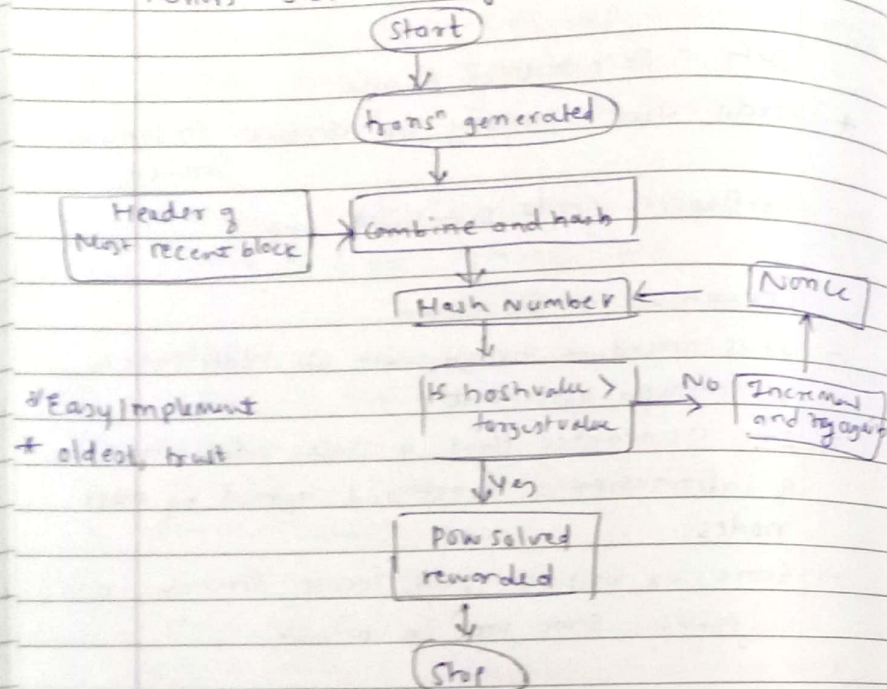 Start
transⁿ generated
Header of
Most recent block
Combine and hash
Hash Number
Nonce
Is hashvalue >
targetvalue
No
Increment
and try again
* Easy Implement
* oldest, trust
Yes
Pow solved
rewarded
Stop